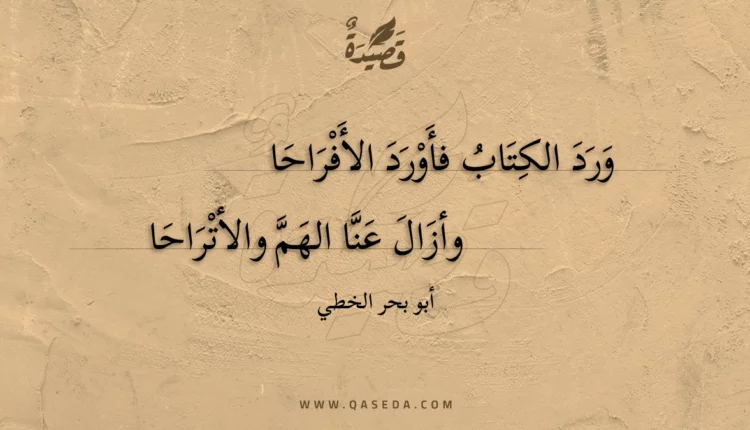 قَصِيْدَةٌ
وَرَدَ الكِتَابُ فأَوْرَدَ الأَفْرَاحَا
وأزَالَ عَنَّا الهَمَّ والأتْرَاحَا
أبو بحر الخطي
WWW.QASEDA.COM